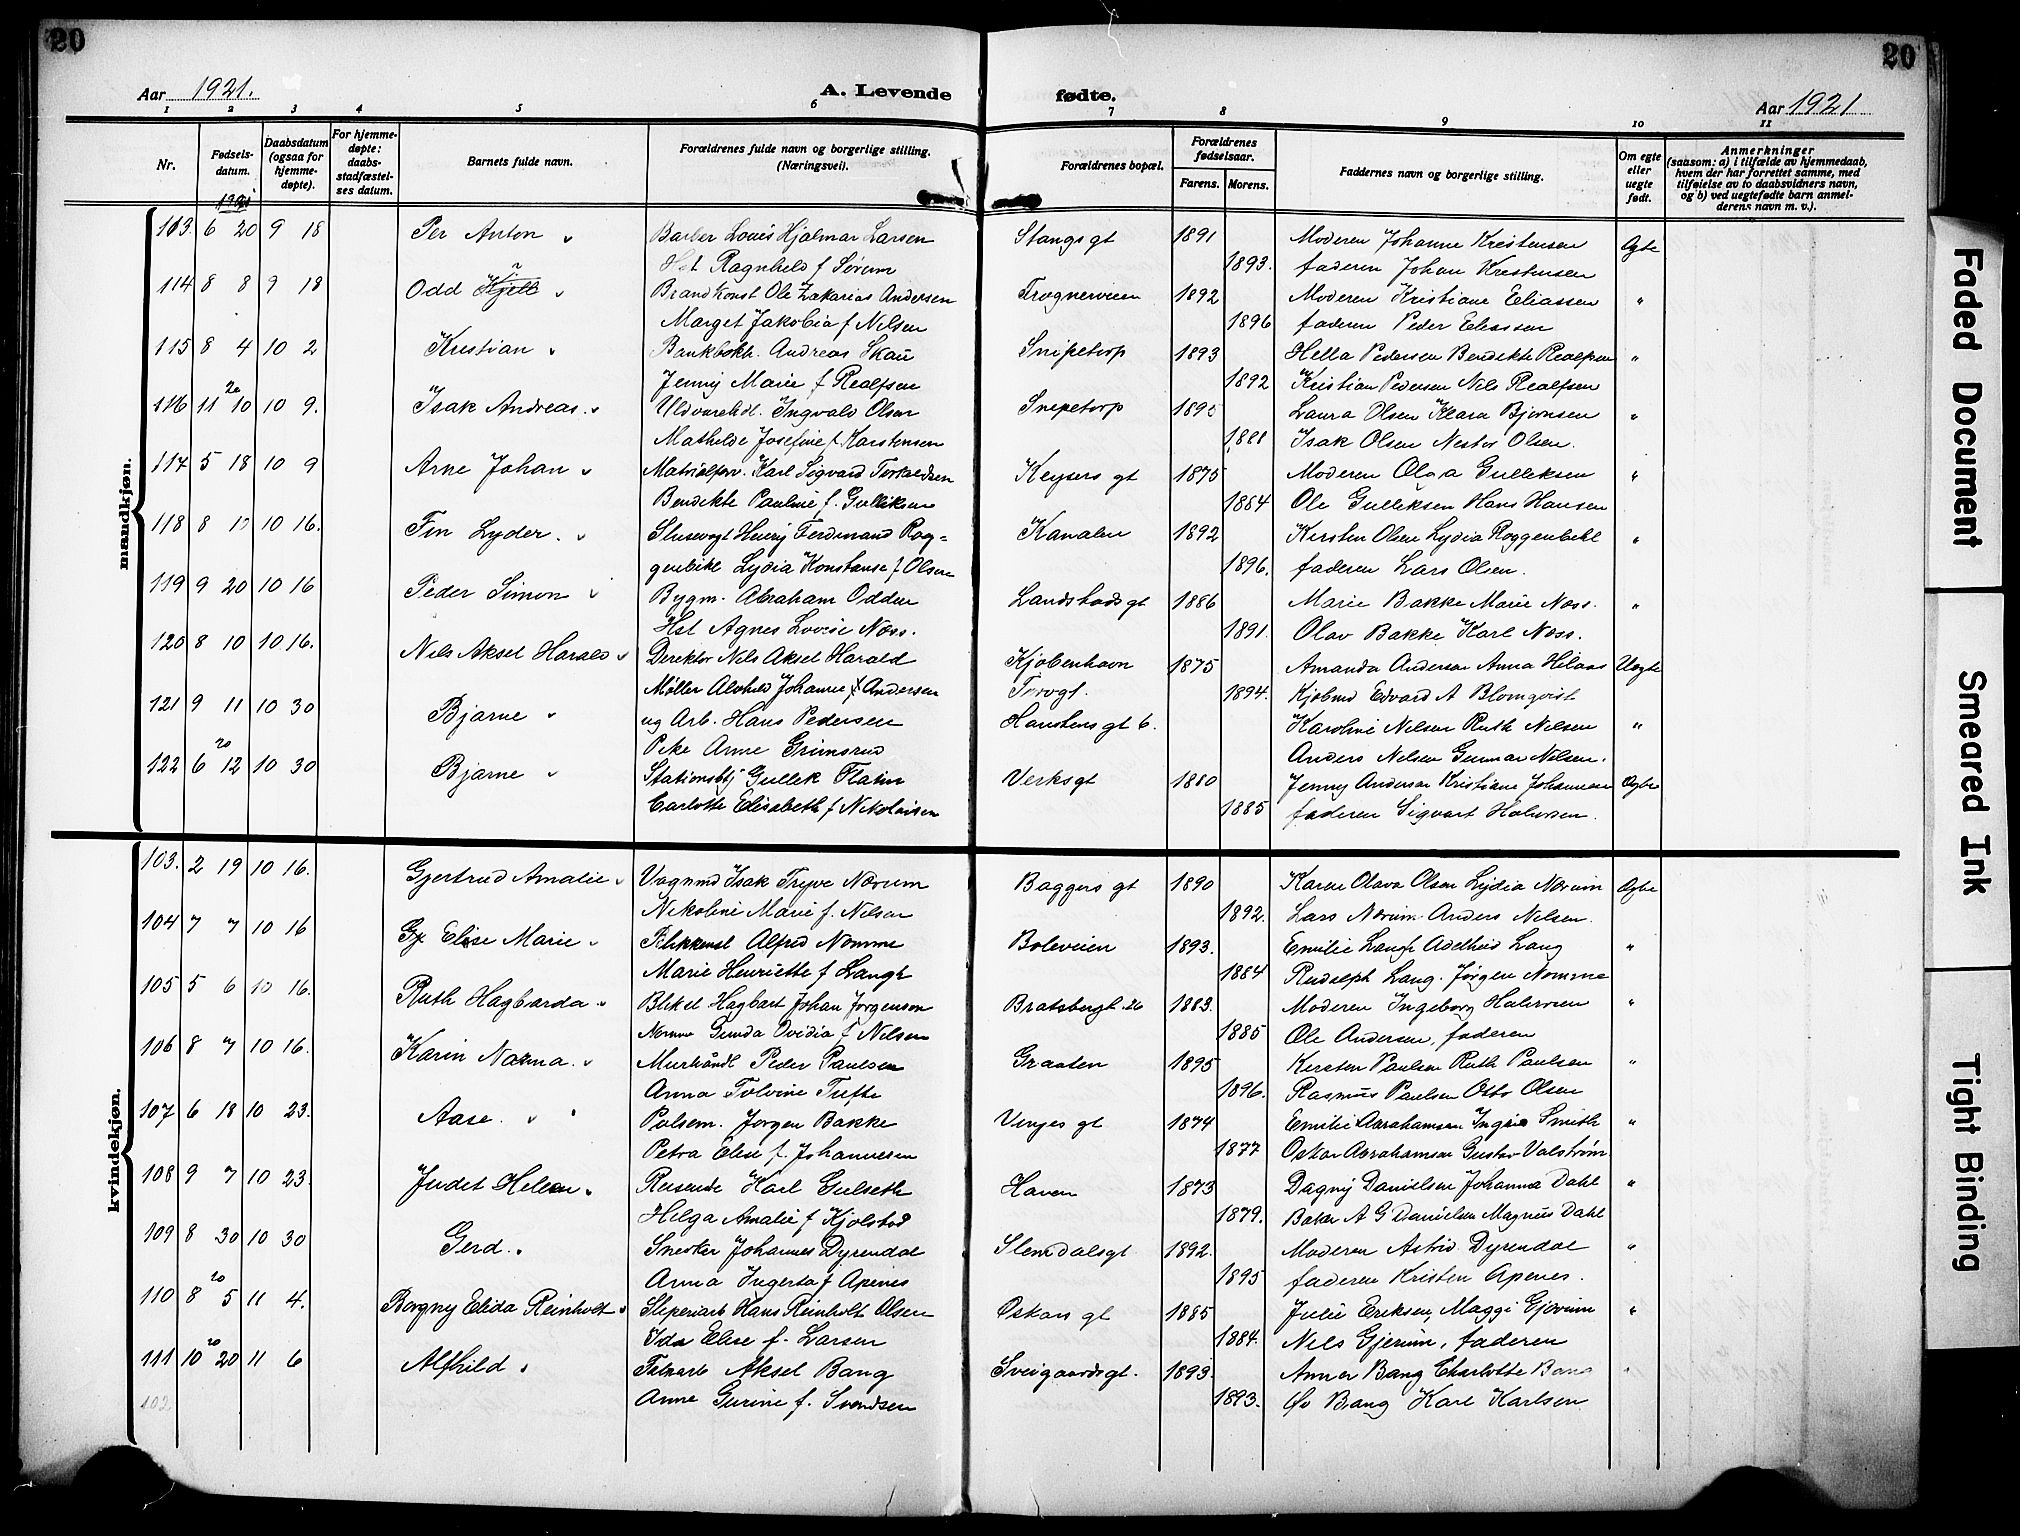 20
20
Aar 1921.
A. Levende fødte.
Aar 1921
1 2 3 4 5 6 7 8 9 10 11
Nr.
Fødsels-
datum.
Daabsdatum
(ogsaa for
hjemme-
døpte).
For hjemme-
døpte:
daabs-
stadfæstel-
ses datum.
Barnets fulde navn.
Forældrenes fulde navn og borgerlige stilling.
(Næringsvei).
Forældrenes bopæl.
Forældrenes
fødselsaar.
Farens. Morens.
Faddernes navn og borgerlige stilling.
Om egte
eller
uegte
født.
Anmerkninger
(saasom: a) i tilfælde av hjemmedaab,
hvem der har forrettet samme, med
tilføielse av to daabsvidners navn,
og b) ved uegtefødte barn anmel-
derens navn m. v.).
1921
mandkjøn.
113. 6 20 9 18 Per Anton Barber Louis Hjalmar Larsen Stangs gt 1891 Moderen Johanne Kristensen Egte
Hst Ragnhild f Sørum 1893. faderen Johan Kristensen
114 8 8 9 18 Odd Kjell Brandkonst Ole Zakarias Andersen Trognerveien 1892 Moderen Kristiane Eliassen "
Marget Jakobia f Nilsen 1896 faderen Peder Eliassen
115 8 4 10 2 Kristian Bankbokh. Andreas Skau Snipetorp 1893 Hella Pedersen Bendikte Realfsen "
Jenny Marie f Realfsen 1892 Kristian Pedersen Nils Realfsen
116 11 20 10 10 9. Isak Andreas Uldvarehdl. Ingvald Olsen Snipetorp 1895 Laura Olsen Klara Bjørnsen "
Mathilde Josefine f. Karstensen 1881 Isak Olsen Nestor Olsen.
117 5 18 10 9 Arne Johan Matrialforv. Karl Sigvard Torkildsen Keysers gt 1875 Moderen Olga Gulleksen "
Bendikte Pauline f. Gulliksen 1884 Ole Gulleksen Hans Hansen
118 8 10 16. Fin Lyder. Slusevogt Henry Ferdinand Rog= Kanalen 1892 Kirsten Olsen Lydia Roggenbihl "
genbihl Lydia Konstanse f Olsen 1896. faderen Lars Olsen.
119 9 20 10 16 Peder Simon Bygm. Abraham Odden Landstads gt 1886 Marie Bakke Marie Næss. "
Hst Agnes Lovise Næss. 1891. Olav Bakke Karl Næss.
120 8 10 10 16. Nils Aksel Harald Direktør Nils Aksel Harald Kjøbenhavn 1875 Amanda Andersen Anna Hilaas Uegte
Møller Alvhild Johanne f Andersen Torvgt. 1894. Kjøbmd Edvard A Blomqvist
121 9 11 10 30 Bjarne ug Arb. Hans Pedersen Hanstens gt 6. Karoline Nilsen Ruth Nilsen "
Pike Anne Grimsrud Anders Nilsen Gunnar Nilsen.
122 6 20 12 10 30 Bjarne Stationsbtj Gullek Flatin Verksgt 1880 Jenny Andersen Kristiane Johannesen Egte
Carlotte Elisabeth f Nikolaisen 1885 faderen Sigvart Halvorsen.
kvindekjøn.
103. 2 19 10 16. Gjertrud Amalie Vognmd Isak Trygve Nærum Baggers gt 1890 Karen Olava Olsen Lydia Nærum Egte
Nikoline Marie f. Nilsen 1892. Lars Nærum Anders Nilsen.
104 7 7 10 16 Elise Marie Alfred Nomme Boleveien 1893. Emilie Langh Adelheid Lang "
Marie Henriette f Langh 1884 Rudolph Lang. Jørgen Nomme
105 5 6 10 16. Ruth Hagbarda Hagbart Johan Jørgensen Bratsbergt 26 1883. Moderen Ingeborg Halvorsen "
Gunda Ovidia f Nilsen 1885 Ole Andersen, faderen
106 8 7 10 16. Karin Norma Murhåndl Peder Paulsen Graaten 1895 Kirsten Paulsen Ruth Paulsen "
Anna Tolvine Tufte 1896. Rasmus Paulsen Otto Olsen
107 6 18 10 23. Aase. Pølsem. Jørgen Bakke Vinjes gt 1874 Emilie Abrahamsen Ingrid Smith "
Petra Elise f. Johannesen 1877 Oskar Abrahamsen Gustav Valstrøm
108 9 7 10 23. Judet Helen Reisende Karl Gulseth Haven 1873 Dagny Danielsen Johanna Dahl "
Helga Amalie f Kjolstad 1879. Baker A G Danielsen Magnus Dahl
109 8 30 10 30 Gerd. Snedker Johannes Dyrendal Slemdalsgt 1892. Moderen Astrid Dyrendal "
Anna Ingerta f Apenes 1895 faderen Kristen Apenes.
110 8 20 5 11 4. Borgny Elida Reinholt Sliperiarb Hans Reinholt Olsen Oskars gt 1885 Julie Eriksen, Maggi Gjerum "
Ida Elise f. Larsen 1884. Nils Gjerum, faderen
111 10 20 20 11 6 Alfhild Aksel Bang Sveigaardsgt. 1893. Anna Bang Charlotte Bang "
Anne Gurine f. Svendsen 1893. Øv Bang Karl Karlsen
Faded Document
Smeared Ink
Tight Binding